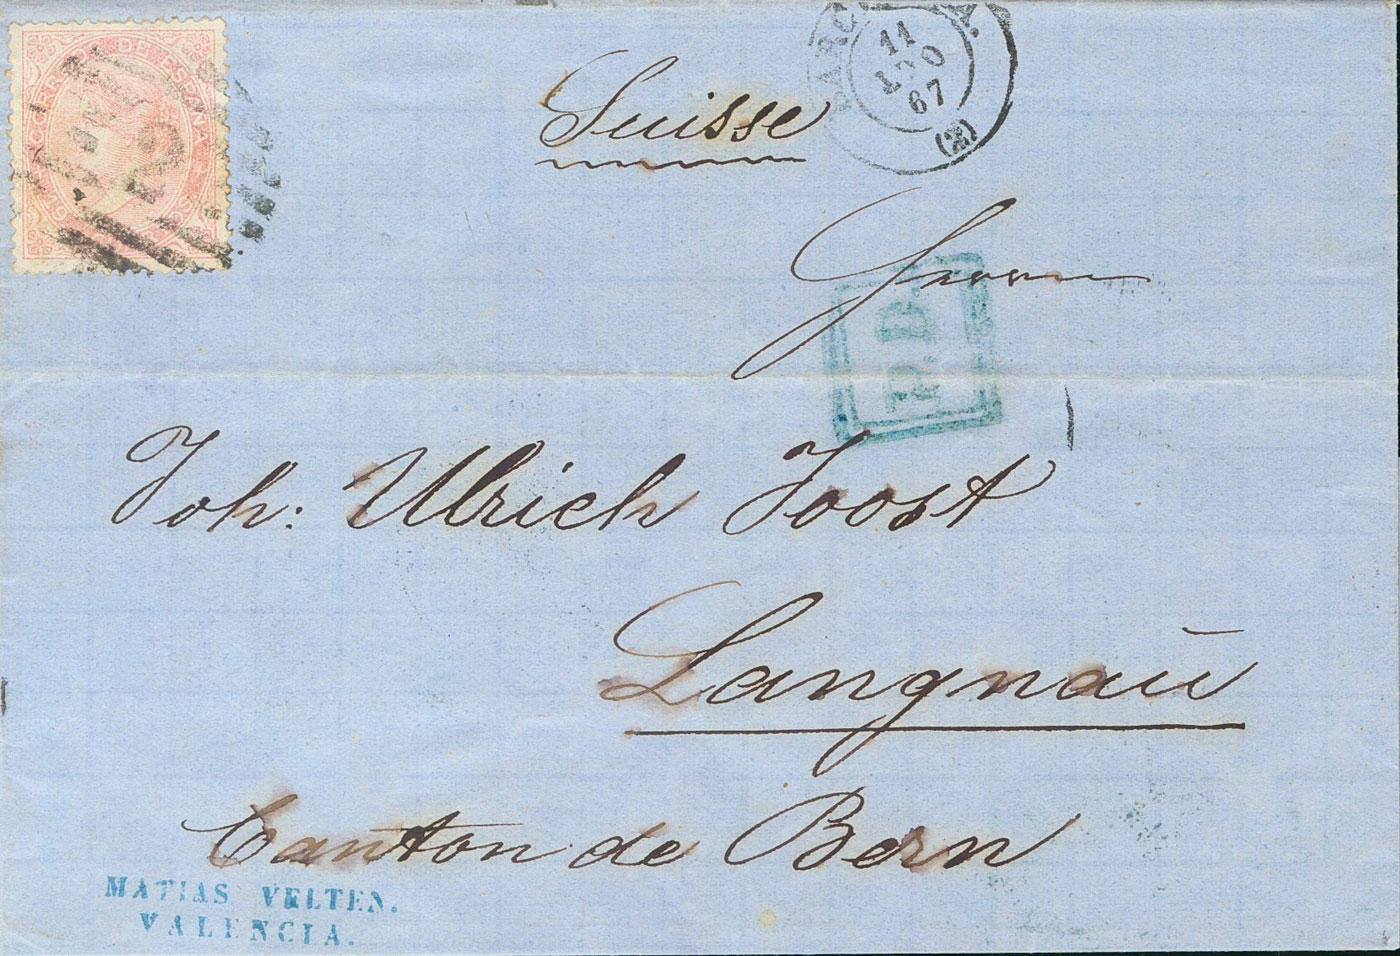 CORREOS DE ESPAÑA
2
BARCELONA.
11
AGO
67
(2)
Suisse
Herrn
P.D.
Joh: Ulrich Joost
Langnaū
Canton de Bern
MATIAS VELTEN.
VALENCIA.